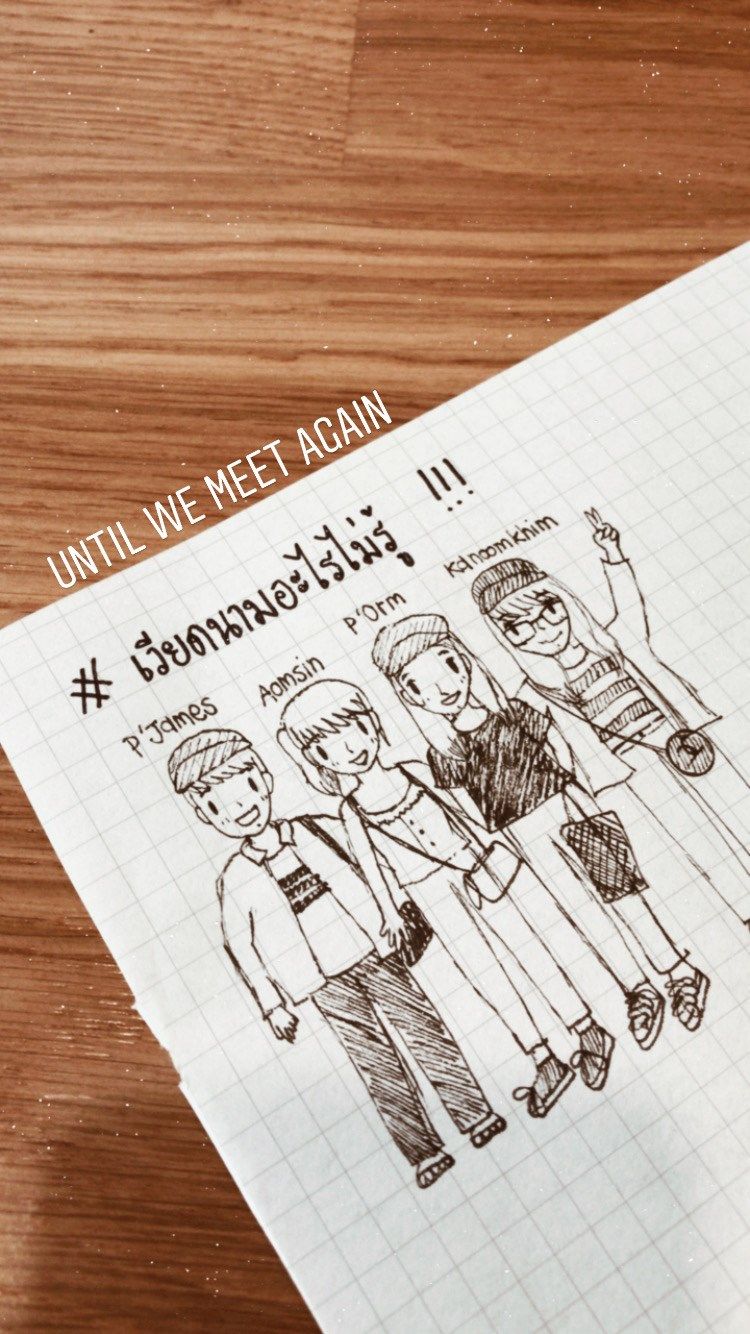 UNTIL WE MEET AGAIN
# เวียดนามอะไรไม่รู้ !!!
P'James
Aomsin
P'Orm
Kanoomkhim